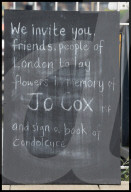 We invite you,
friends, people of
London to lay
flowers in memory of
Jo Cox
and sign a book of
condolence